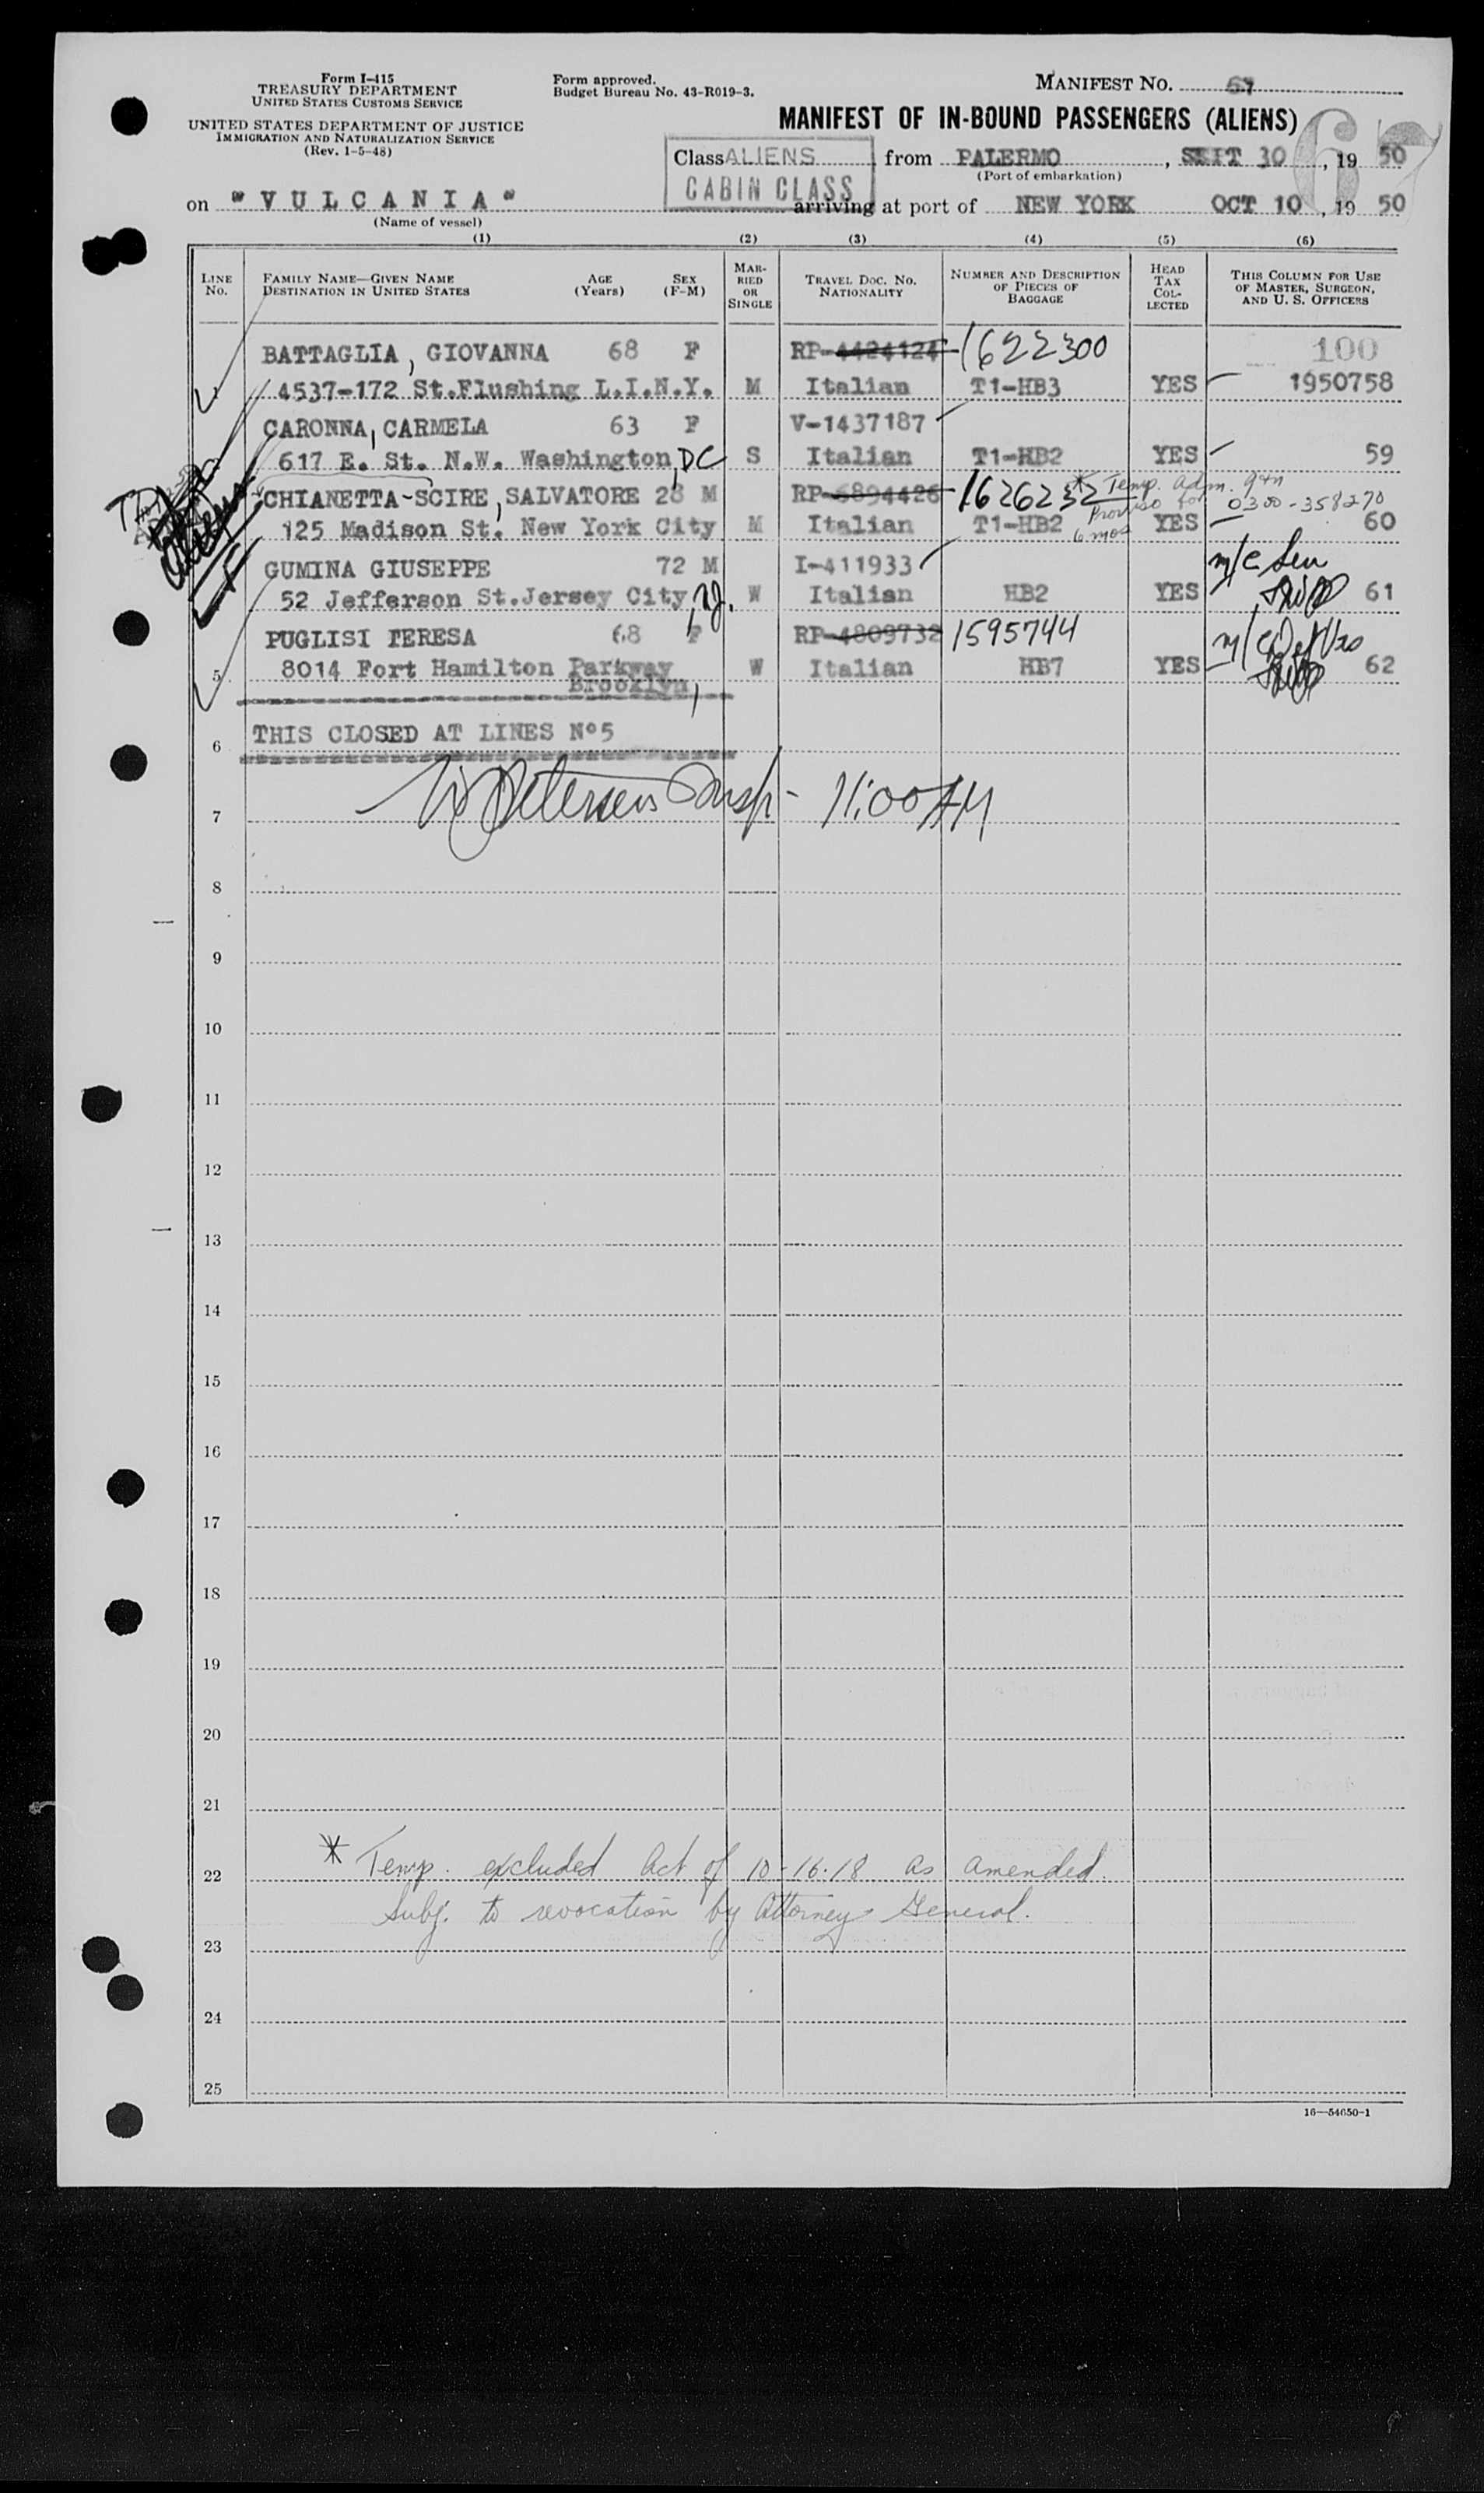 Form I-415
TREASURY DEPARTMENT
UNITED STATES CUSTOMS SERVICE
UNITED STATES DEPARTMENT OF JUSTICE
IMMIGRATION AND NATURALIZATION SERVICE
(Rev. 1-5-48)
Form approved.
Budget Bureau No. 43-R019-3.
MANIFEST NO. 67
MANIFEST OF IN-BOUND PASSENGERS (ALIENS)
67
Class ALIENS from PALERMO, 30, 19 50
CABIN CLASS
(Port of embarkation)
on "VULCANIA" arriving at port of NEW YORK OCT 10, 19 50
(Name of vessel)
(1) (2) (3) (4) (5) (6)
LINE No. FAMILY NAME—GIVEN NAME DESTINATION IN UNITED STATES AGE (Years) SEX (F-M) MARRIED OR SINGLE TRAVEL DOC. NO. NATIONALITY NUMBER AND DESCRIPTION OF PIECES OF BAGGAGE HEAD TAX COLLECTED THIS COLUMN FOR USE OF MASTER, SURGEON, AND U. S. OFFICERS
BATTAGLIA, GIOVANNA 68 F RP-4424124 1622300 100
4537-172 St.Flushing L.I.N.Y. M Italian T1-HB3 YES 1950758
CARONNA, CARMELA 63 F V-1437187
617 E. St. N.W. Washington, DC S Italian T1-HB2 YES 59
CHIANETTA-SCIRE, SALVATORE 28 M RP-6894426 1626232 * Temp. Adm. 9th
Proviso for 0300-358270
125 Madison St. New York City M Italian T1-HB2 6 mos YES 60
GUMINA GIUSEPPE 72 M I-411933 m/c Sen
52 Jefferson St.Jersey City, N.J. W Italian HB2 YES 61
PUGLISI TERESA 68 F RP-4809732 1595744 m/c
5 8014 Fort Hamilton Parkway W Italian HB7 YES 62
Brooklyn,
6 THIS CLOSED AT LINES Nº5
7 Petersen Insp - 11:00 AM
8
9
10
11
12
13
14
15
16
17
18
19
20
21
22 * Temp. excluded Act of 10-16-18 as amended.
Subj. to revocation by Attorney General.
23
24
25
16—54650-1